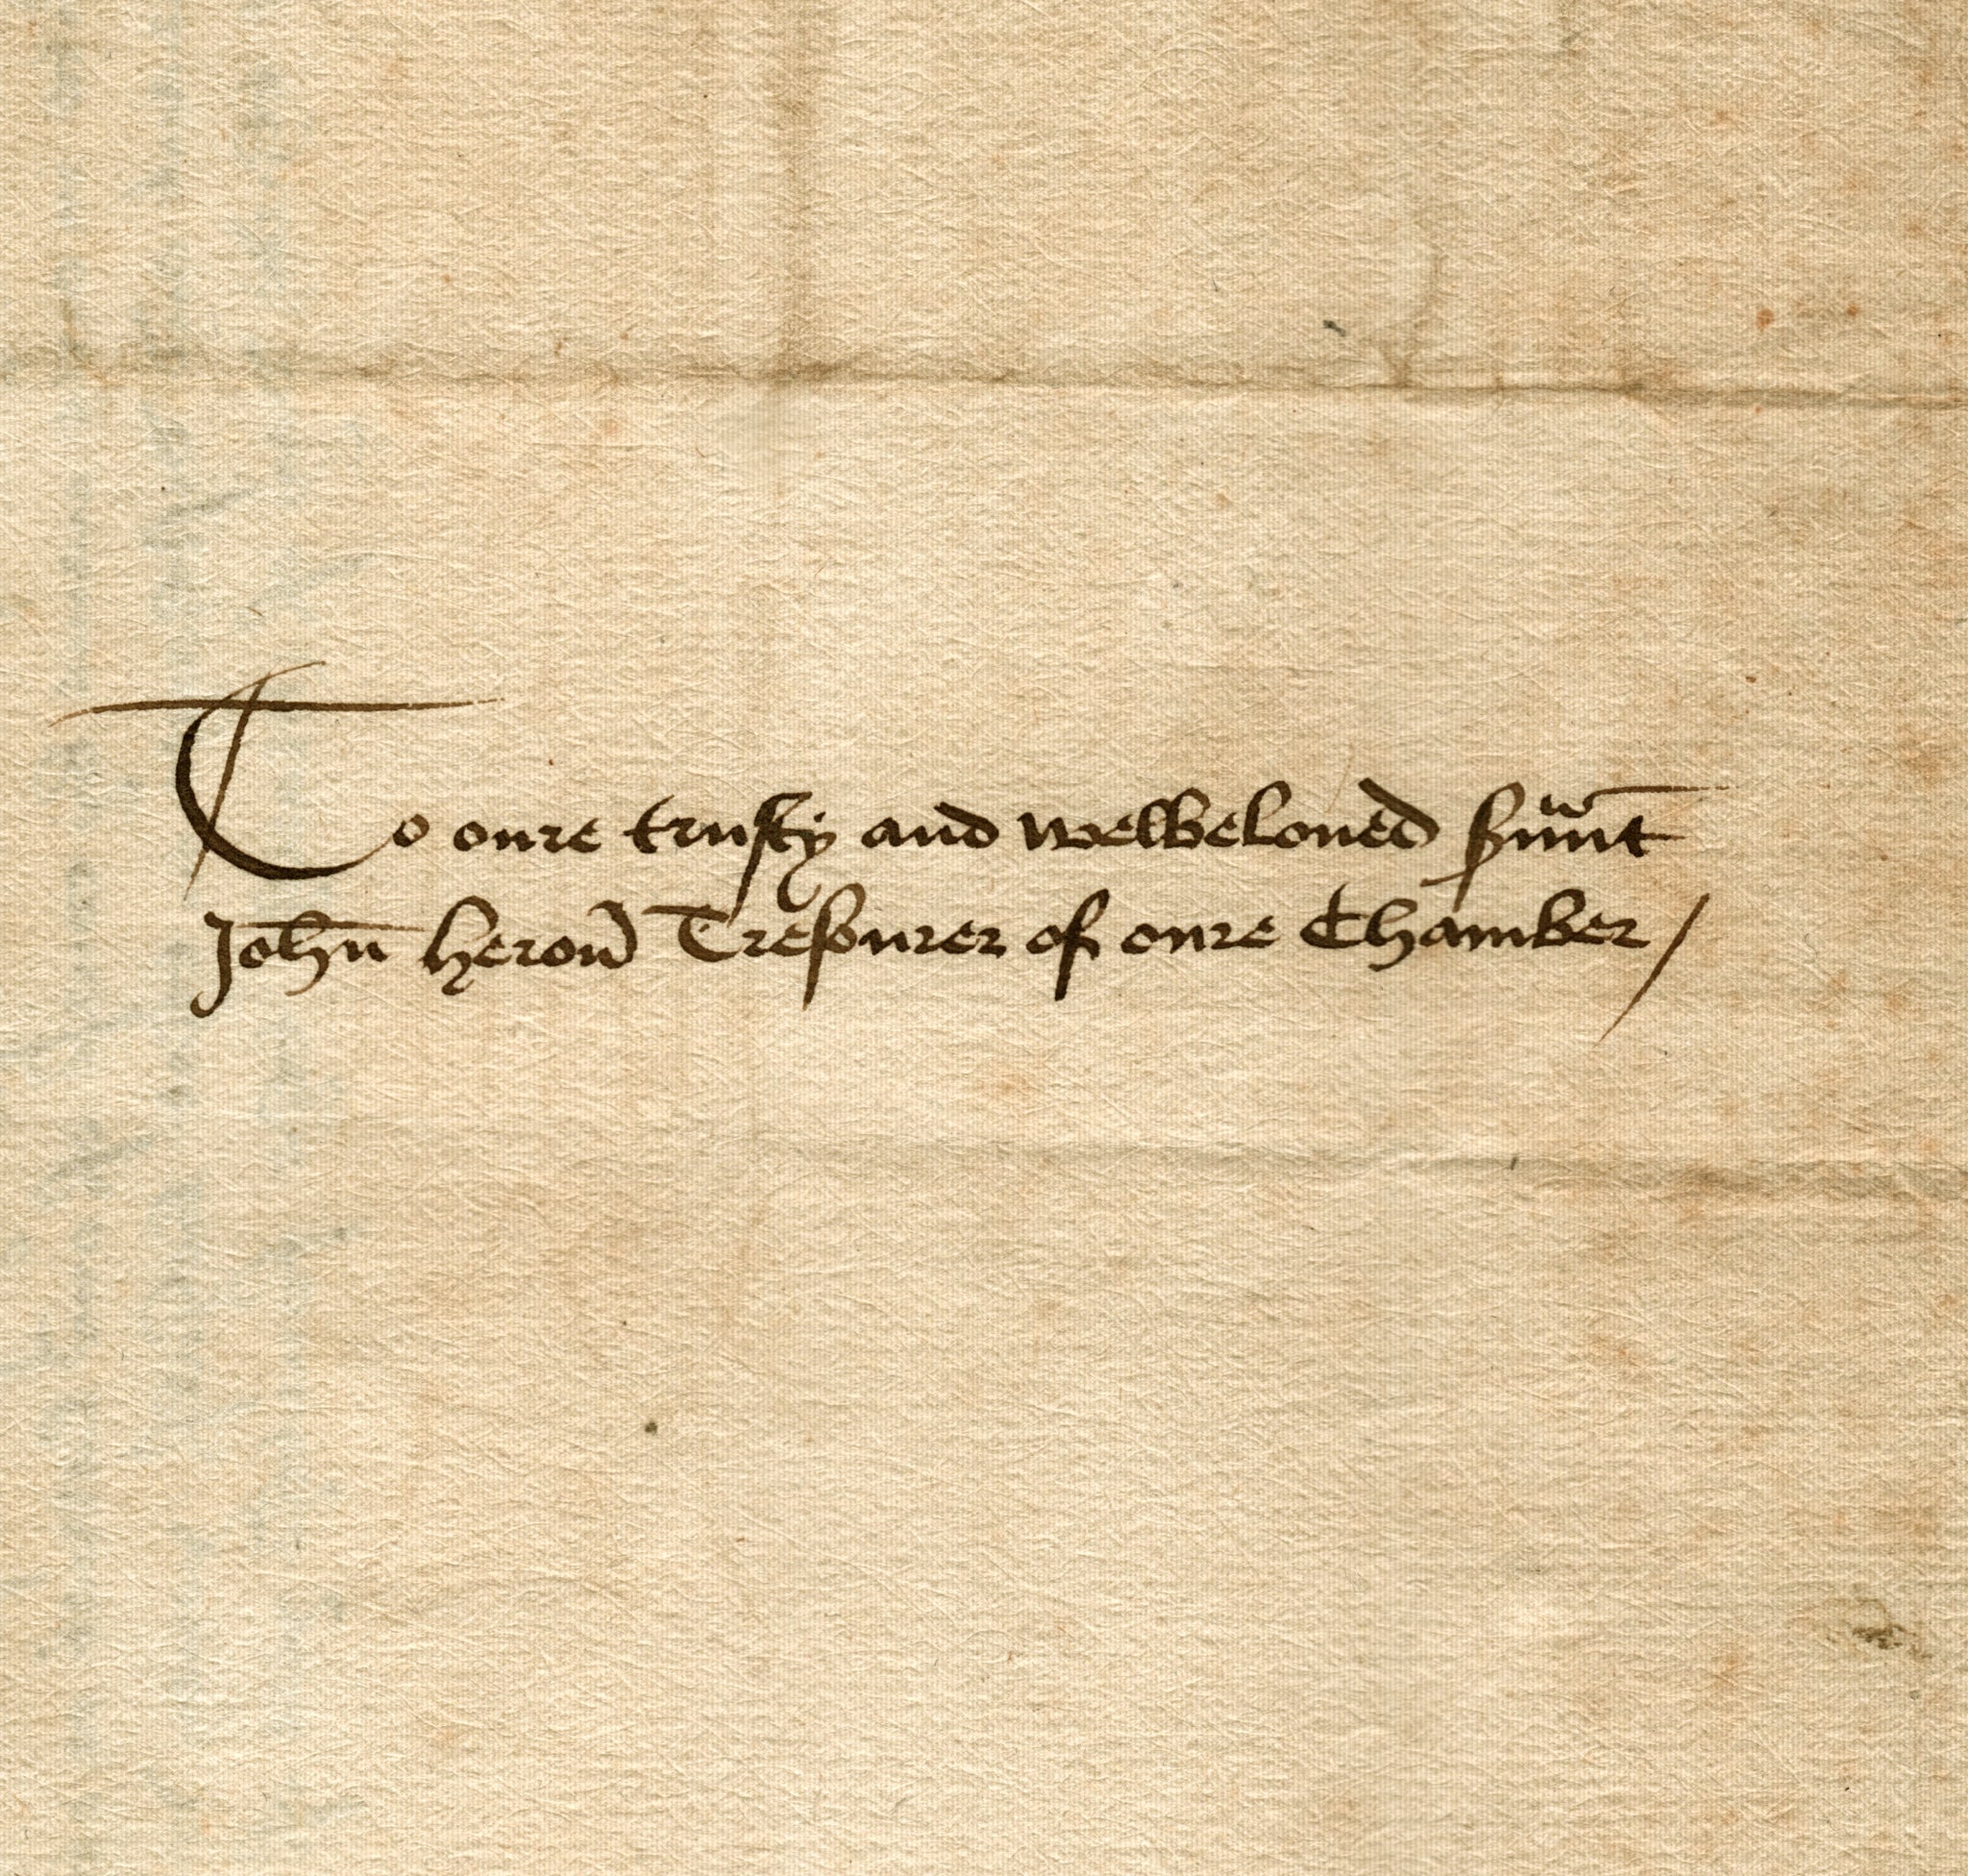 To oure trusty and welbeloued s̄uᵃunt
John̄ heron̄ Tresourer of oure Chamber /